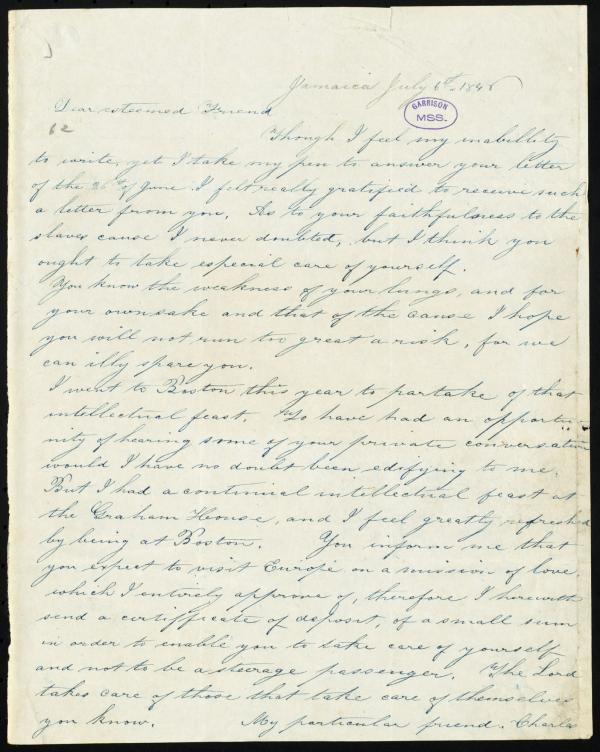 Jamaica July 6th 184
GARRISON
MSS.
Dear esteemed Friend
62
Though I feel my inabillity
to write, yet I take my pen to answer your letter
of the 26th of June. I felt really gratified to receive such
a letter from you. As to your faithfulness to the
slaves cause I never doubted, but I think you
ought to take especial care of yourself.
You know the weakness of your lungs, and for
your own sake and that of the cause I hope
you will not run too great a risk, for we
can illy spare you.
I went to Boston this year to partake of that
intellectual feast. To have had an opportu-
nity of hearing some of your private conversation
would I have no doubt been edifying to me.
But I had a continual intellectual feast at
the Graham House, and I feel greatly refreshed
by being at Boston. You inform me that
you expect to visit Europe on a mission of love,
which I entirely approve of, therefore I herewith
send a certifficate of deposit, of a small sum
in order to enable you to take care of yourself
and not to be a steerage passenger. The Lord
takes care of those that take care of themselves
you know. My particular friend. Charles